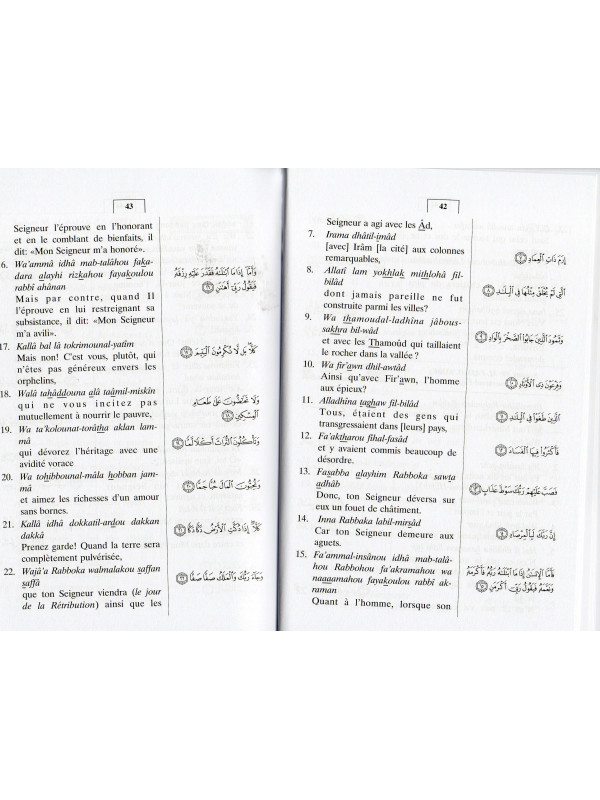 42
Seigneur a agi avec les Âd,
7. Irama dhâtil-imâd
[avec] Irâm [la cité] aux colonnes
remarquables,
8. Allatî lam yokhlak mithlohâ fil-
bilâd
dont jamais pareille ne fut
construite parmi les villes?
9. Wa thamoudal-ladhîna jâbous-
sakhra bil-wâd
et avec les Thamoûd qui taillaient
le rocher dans la vallée ?
10. Wa fir'awn dhil-awtâd
Ainsi qu'avec Fir'awn, l'homme
aux épieux?
11. Alladhîna taghaw fil-bilâd
Tous, étaient des gens qui
transgressaient dans [leurs] pays,
12. Fa'aktharou fîhal-fasâd
et y avaient commis beaucoup de
désordre.
13. Fasabba alayhim Rabboka sawta
adhâb
Donc, ton Seigneur déversa sur
eux un fouet de châtiment.
14. Inna Rabbaka labil-mirsâd
Car ton Seigneur demeure aux
aguets.
15. Fa'ammal-insânou idhâ mab-talâ-
hou Rabbohou fa'akramahou wa
naaaamahou fayakoulou rabbî ak-
raman
Quant à l'homme, lorsque son
إِرَمَ ذَاتِ ٱلْعِمَادِ ٧
ٱلَّتِى لَمْ يُخْلَقْ مِثْلُهَا فِى ٱلْبِلَٰدِ ٨
وَثَمُودَ ٱلَّذِينَ جَابُوا۟ ٱلصَّخْرَ بِٱلْوَادِ ٩
وَفِرْعَوْنَ ذِى ٱلْأَوْتَادِ ١٠
ٱلَّذِينَ طَغَوْا۟ فِى ٱلْبِلَٰدِ ١١
فَأَكْثَرُوا۟ فِيهَا ٱلْفَسَادَ ١٢
فَصَبَّ عَلَيْهِمْ رَبُّكَ سَوْطَ عَذَابٍ ١٣
إِنَّ رَبَّكَ لَبِٱلْمِرْصَادِ ١٤
فَأَمَّا ٱلْإِنسَٰنُ إِذَا مَا ٱبْتَلَىٰهُ رَبُّهُۥ فَأَكْرَمَهُۥ
وَنَعَّمَهُۥ فَيَقُولُ رَبِّىٓ أَكْرَمَنِ ١٥
43
Seigneur l'éprouve en l'honorant
et en le comblant de bienfaits, il
dit: «Mon Seigneur m'a honoré».
6. Wa'ammâ idhâ mab-talâhou faka-
dara alayhi rizkahou fayakoulou
rabbî ahânan
Mais par contre, quand Il
l'éprouve en lui restreignant sa
subsistance, il dit: «Mon Seigneur
m'a avili».
17. Kallâ bal lâ tokrimounal-yatîm
Mais non! C'est vous, plutôt, qui
n'êtes pas généreux envers les
orphelins,
18. Walâ tahâddouna alâ taâmil-miskîn
qui ne vous incitez pas
mutuellement à nourrir le pauvre,
19. Wa ta'kolounat-torâtha aklan lam-
mâ
qui dévorez l'héritage avec une
avidité vorace
20. Wa tohibbounal-mâla hobban jam-
mâ
et aimez les richesses d'un amour
sans bornes.
21. Kallâ idhâ dokkatil-ardou dakkan
dakkâ
Prenez garde! Quand la terre sera
complètement pulvérisée,
22. Wajâ'a Rabboka walmalakou saffan
saffâ
que ton Seigneur viendra (le jour
de la Rétribution) ainsi que les
وَأَمَّآ إِذَا مَا ٱبْتَلَىٰهُ فَقَدَرَ عَلَيْهِ رِزْقَهُۥ
فَيَقُولُ رَبِّىٓ أَهَٰنَنِ ١٦
كَلَّا بَل لَّا تُكْرِمُونَ ٱلْيَتِيمَ ١٧
وَلَا تَحَٰٓضُّونَ عَلَىٰ طَعَامِ
ٱلْمِسْكِينِ ١٨
وَتَأْكُلُونَ ٱلتُّرَاثَ أَكْلًا لَّمًّا ١٩
وَتُحِبُّونَ ٱلْمَالَ حُبًّا جَمًّا ٢٠
كَلَّآ إِذَا دُكَّتِ ٱلْأَرْضُ دَكًّا دَكًّا ٢١
وَجَآءَ رَبُّكَ وَٱلْمَلَكُ صَفًّا صَفًّا ٢٢